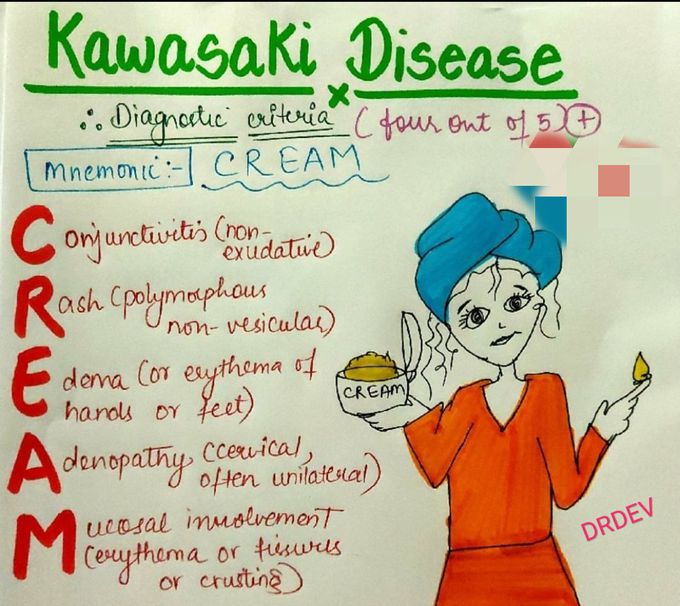 Kawasaki Disease
∴ Diagnostic criteria (four out of 5) +
Mnemonic :- CREAM
Conjunctivitis (non-
exudative)
Rash (polymorphous
non-vesicular)
Edema (or erythema of
hands or feet)
Adenopathy (cervical,
often unilateral)
CREAM
Mucosal involvement
(erythema or fissures
or crusting)
DRDEV